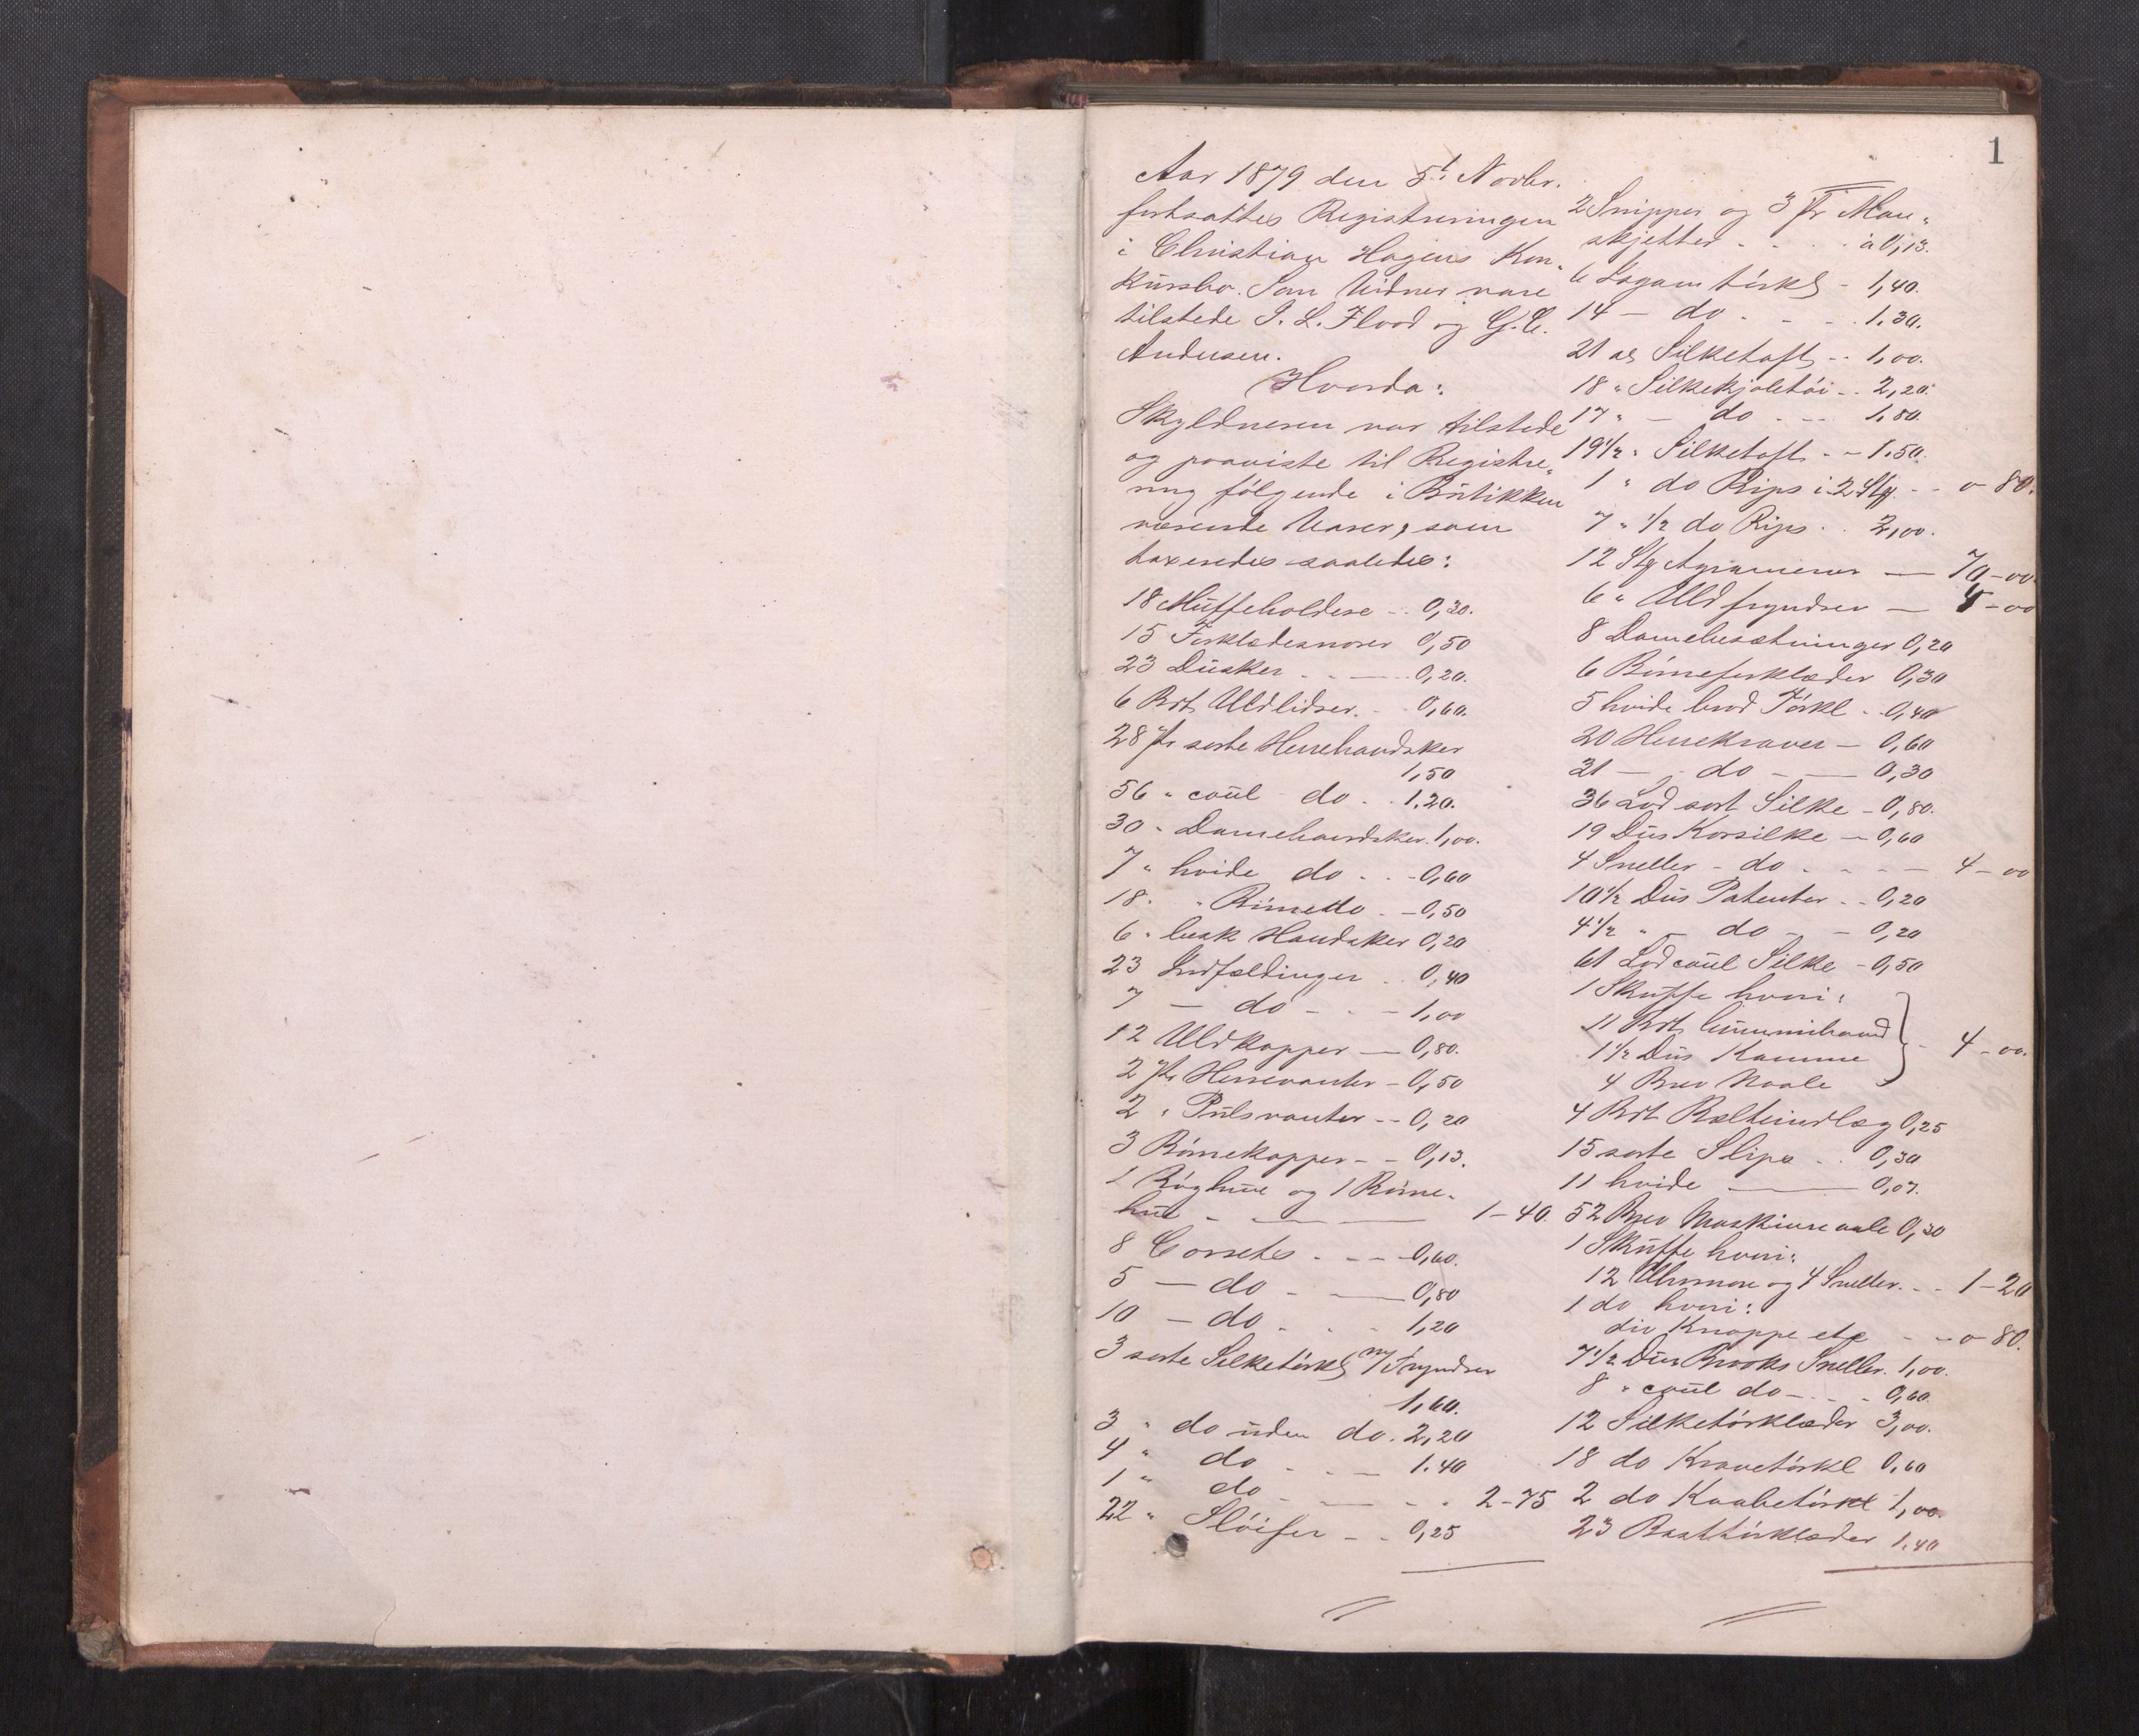 1
Aar 1879 den 5t Novbr.
fortsattes Registreringen
i Christian Hagens Kon-
kursbo. Som Vidner vare
tilstede J. L. Flood og G. C.
Andersen.
Hvorda:
Skyldneren var tilstede
og paaviste til Registre-
ring følgende i Butikken
værende Varer, som
taxeredes saaledes:
18 Muffeholdere - . 0,30.
15 Forklædesnorer 0,50
23 Dusker . . — 0,20.
6 Bdt Uldlidser. - 0,60.
28 Pr sorte Herrehandsker
1,50
56 " coul do . . 1.20.
30 " Damehandsker. 1,00.
7 " hvide do . . - 0,60
18 " " Børne do . - 0,50
6 " besk Handsker 0,20
23 Indfældinger . . 0,40
7 — do - . - 1,00
12 Uldkapper — 0,80.
2 Pr Herrevanter - 0,50
2 " Pulsvanter - - 0,20
3 Børnekapper - - 0,13.
1 Røghue og 1 Børne-
hue - — — 1 - 40.
8 Corsetes . - - 0,60.
5 — do - — 0,80
10 — do . . - 1,20
3 sorte Silketørkl m/ Fryndser
1,60.
3 " do uden do. 2,20
4 " do . . — 1.40
1 " do - — - . 2-75
22 " Sløifer - . 0,25
2 Snipper og 3 Pr Man-
skjetter . - . . a 0,13.
6 tørkl - 1,40.
14 — do . - . 1.30.
21 al Silketaft - - 1,00.
18 " Silkekjoletøi - . 2,20.
17 " — do . - - 1.80.
19 1/2 " Silketaft. - - 1.50.
1 " do Rips i 2 Stg. - - 0 80.
7 " 1/2 do Rips . . 2,00.
12 Stg Agramener — 70-00
6 " Uld fryndser — -00
8 Damebesætninger 0,20
6 Børneforklæder 0,30
5 hvide brod Tørkl . . 0,40
20 Herrekraver - 0,60
21 — do - — 0,30
36 Lod sort Silke - 0,80.
19 Dus Korsilke — 0,60
4 Sneller - do . - - — 4 - 00
10 1/2 Dus Patenter . . 0,20
4 1/2 " — do - - 0,20
61 Lod coul Silke - 0,50
1 Skuffe hvori:
11 Bdt Gummibaand
1 1/2 Dus Kamme } - 4 - 00.
4 Brev Naale
4 Bdt Bælteindlæg 0,25
15 sorte Slips . . 0,30
11 hvide — 0,07.
52 Brev Maskinnaale 0,30
1 Skuffe hvori:
12 Uhrsnore og 4 Sneller. - - 1 - 20
1 do hvori:
div Knappe etc - - 0 80.
7 1/2 Dus Brooks Sneller. 1,00.
8 " coul do - . - 0,60
12 Silketørklæder 3,00.
18 do Kravetørkl 0,60
2 do Kaabetørkl 1,00.
23 Basttørklæder 1.40